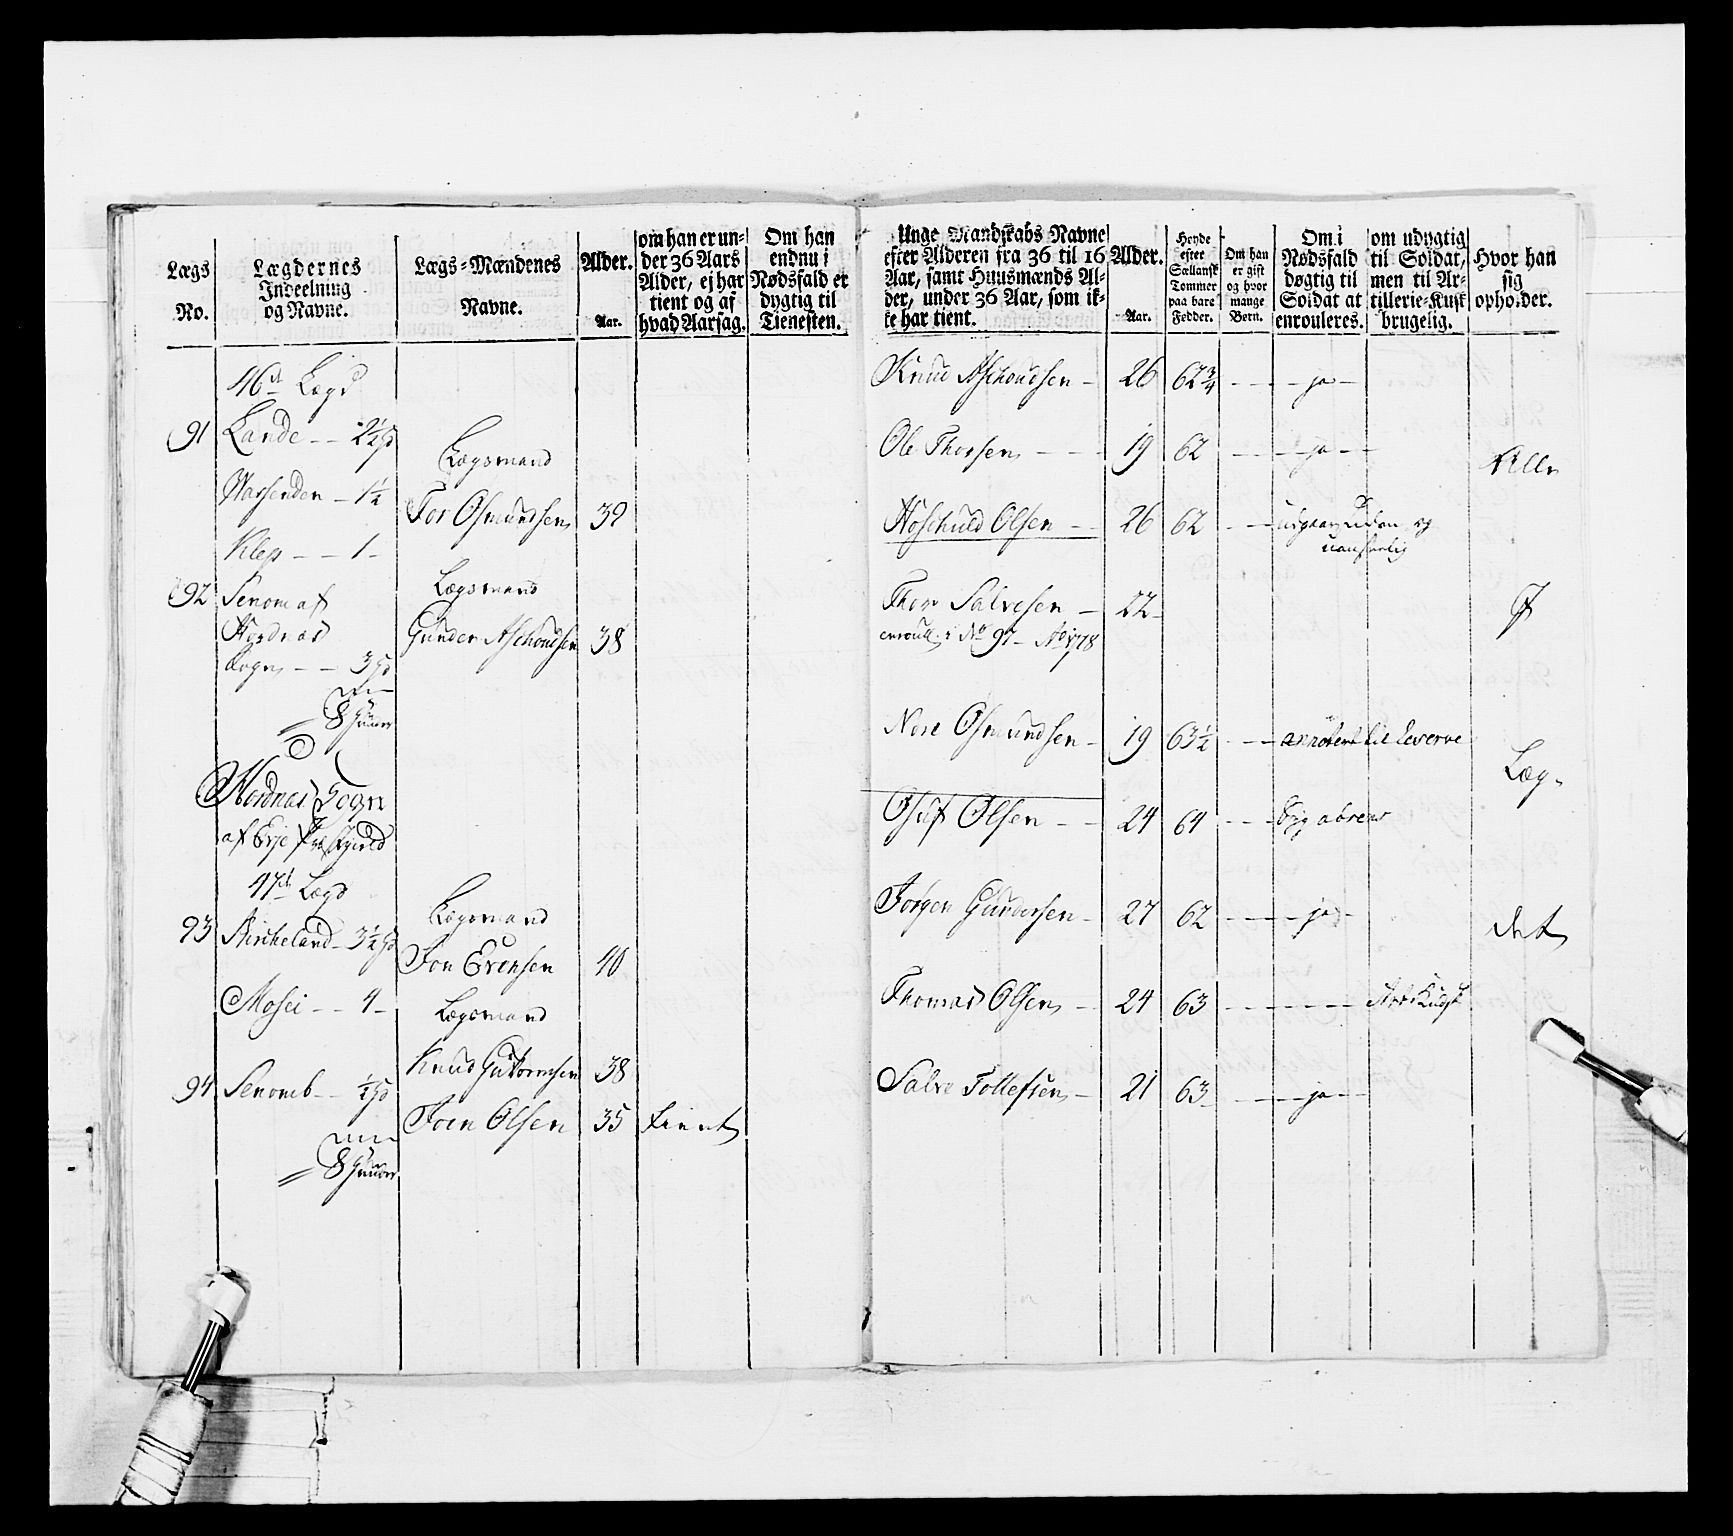 Lægs
No.
Lægdernes
Indeelning
og Navne.
Lægs-Mændenes
Navne.
Alder.
Aar.
om han er un-
der 36 Aars
Alder, ej har
tient og af
hvad Aarsag.
Om han
endnu i
Nødsfald er
dygtig til
Tienesten.
46de Lægd
91 Lande - - 2 1/4 gd
Lægsmand
- 1 1/4
Tor Osmundsen 39
Klep - - 1 -
92 Senom af
Lægsmand
Hordnæs
Gunder Aschoudsen 38
Sogn - - 3 gd
8 Gaarer
Hordnæs Sogn
af Evje Præstegield
47de Lægd
93 Kircheland - 3 1/4 gd
Lægsmand
Jon Evensen 40
Mosei - - 4 -
Lægsmand
Knud Guttormsen 38
94 Senomb - - 1/4 gd
Joen Olsen 35 tient
8 Gaarer
Unge Mandskabs Navne
efter Alderen fra 36 til 16
Aar, samt Huusmænds Al-
der, under 36 Aar, som ik-
ke har tient.
Alder.
Aar.
Høyde
efter
Sællansk
Tommer
paa bare
Fødder.
Om han
er gift
og hvor
mange
Børn.
Om i
Nødsfald
døgtig til
Soldat at
enrouleres.
om udygtig
til Soldat,
men til Ar-
tillerie-Kusk
brugelig.
Hvor han
sig
opholder.
Knud Aschoudsen - 26 62 3/4 - - - ja -
Ole Thorsen - - - 19 62 - - - ja - -
Alle
Hoschuld Olsen - - 26 62 - - og
Thor Salvesen - 22 -
i
enroull. i No 97 - Ao 1778
Nere Osmundsen - 19 63 1/2 - - - til Reserve
Læg-
Osuf Olsen - - 24 64 - - -
Jørgen Gundersen - 27 62 - - - ja -
det
Thomas Olsen - 24 63 - - - - - Art: Kudsk
Salve Tollefsen - 21 63 - - - - ja - -